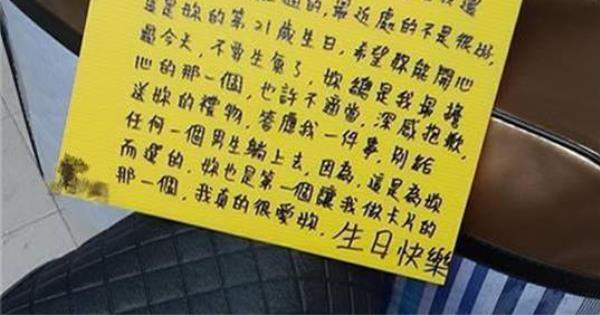 的最近處的不是很好,
還是妳的第21歲生日,希望妳能開心
過今天,不要生氣了,妳總是我最擔
心的那一個,也許不適當,深感抱歉,
送妳的禮物,答應我一件事,別給
任何一個男生躺上去,因為,這是為妳
而選的,妳也是第一個讓我做卡片的
那一個,我真的很愛妳,生日快樂